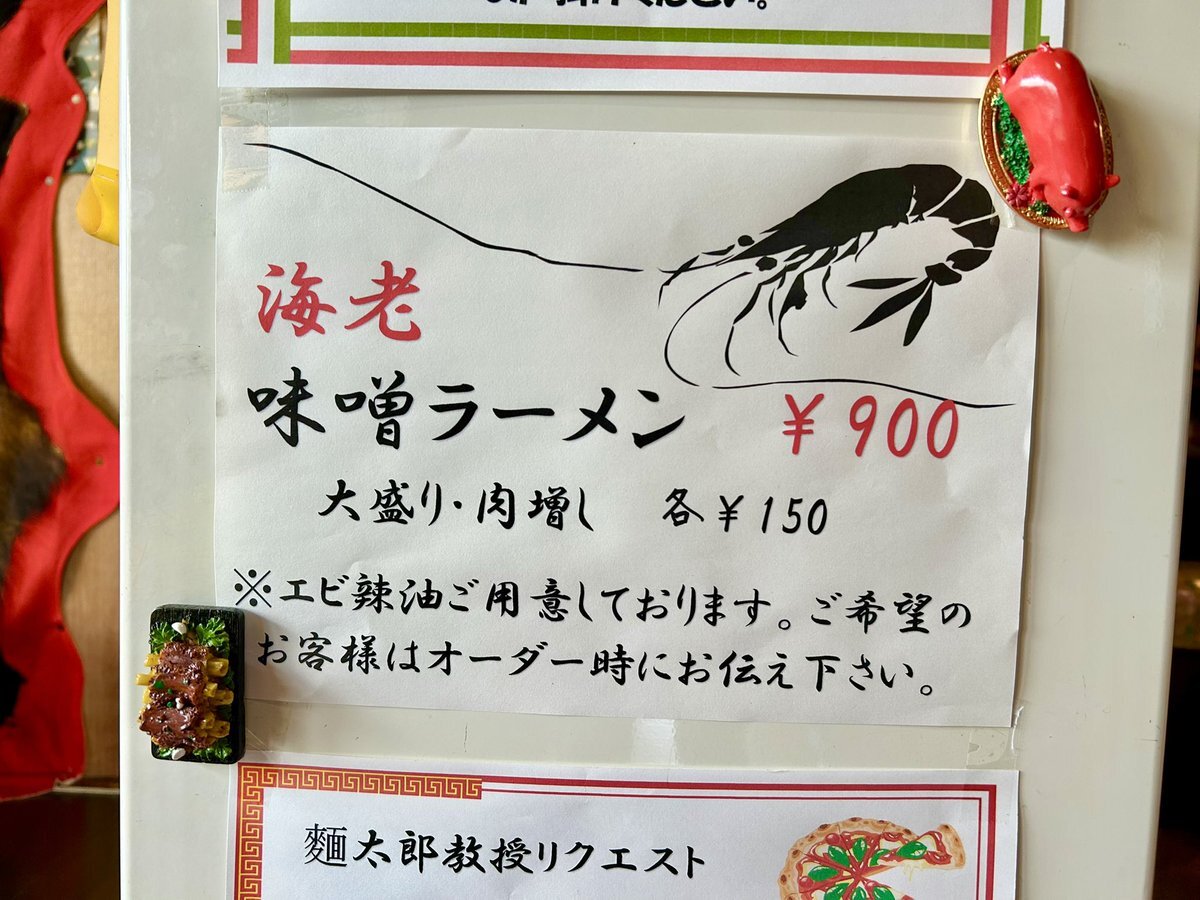 ください。
海老
味噌ラーメン ￥900
大盛り・肉増し 各￥150
※エビ辣油ご用意しております。ご希望の
お客様はオーダー時にお伝え下さい。
麵太郎教授リクエスト